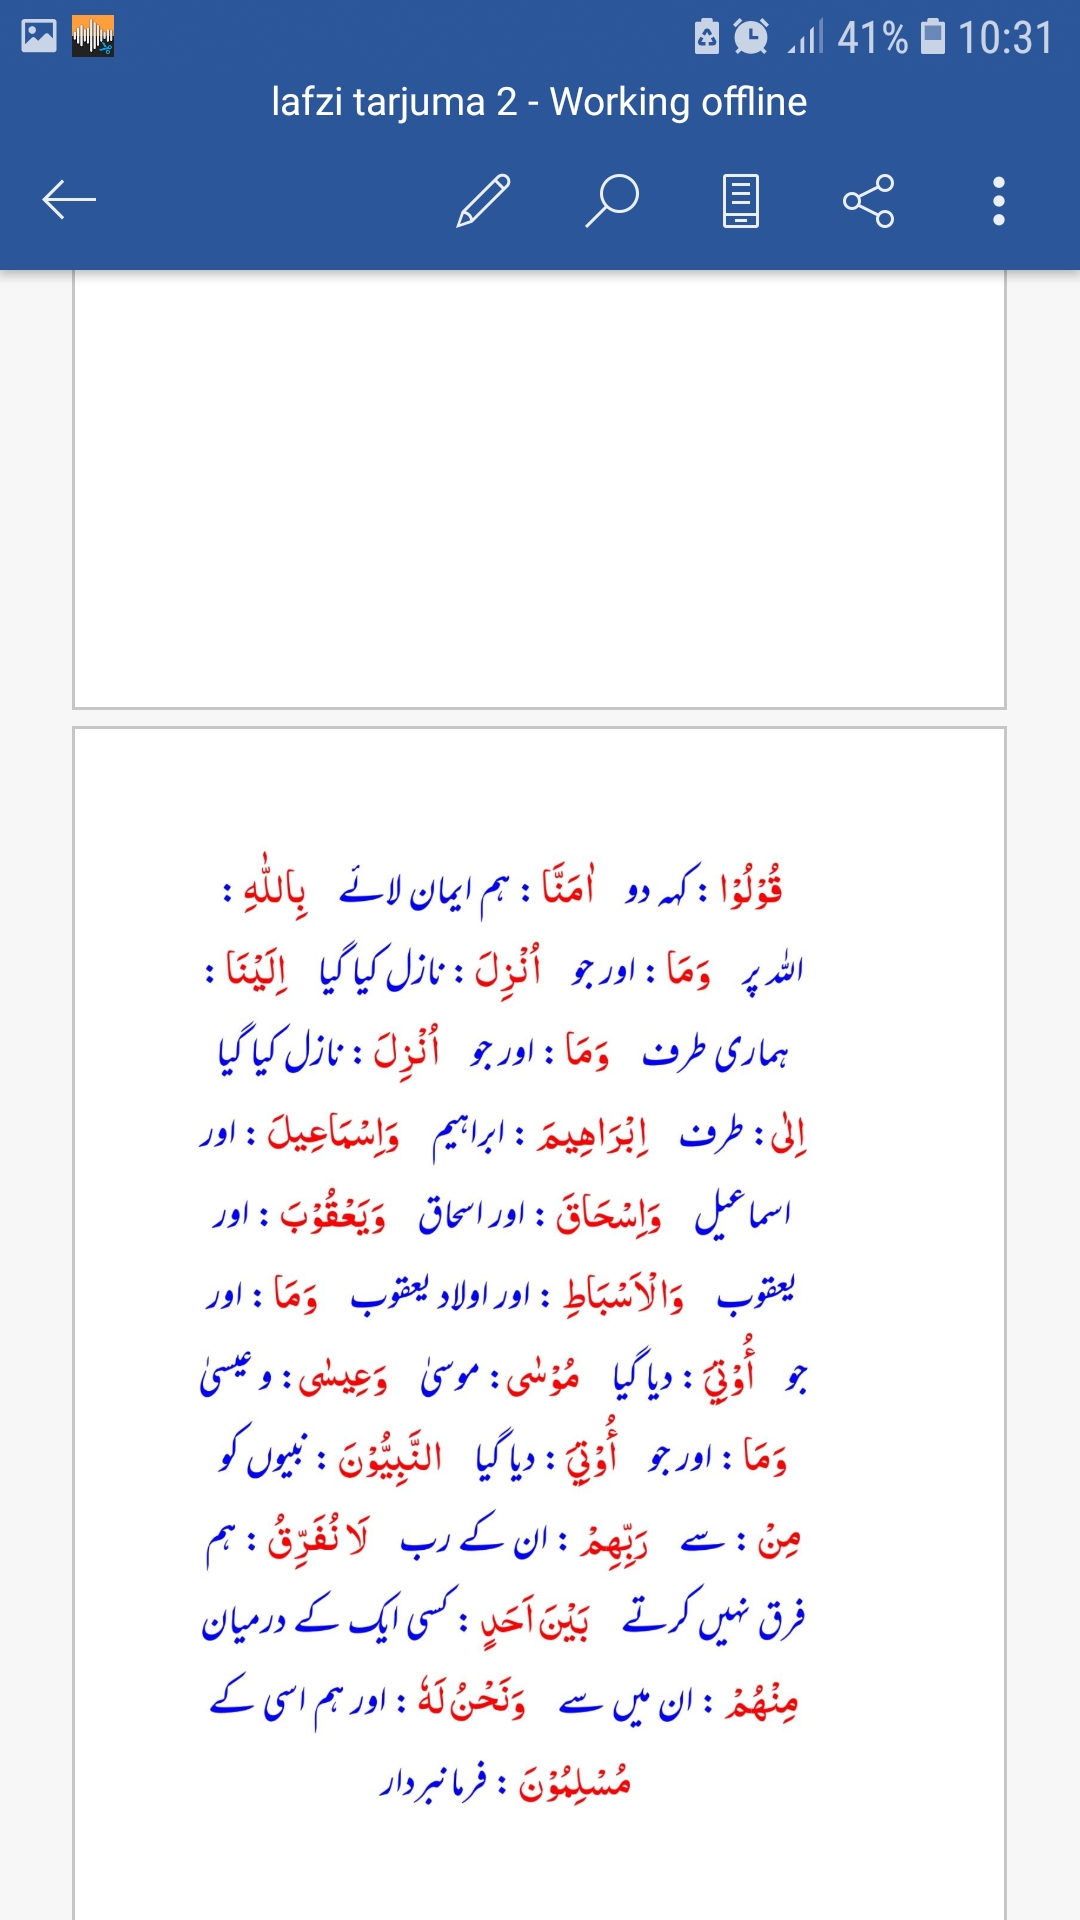 41% 10:31
lafzi tarjuma 2 - Working offline
قُوْلُوْا : کہہ دو اٰمَنَّا : ہم ایمان لائے بِاللّٰهِ :
اللہ پر وَمَا : اور جو اُنْزِلَ : نازل کیا گیا اِلَيْنَا :
ہماری طرف وَمَا : اور جو اُنْزِلَ : نازل کیا گیا
اِلٰى : طرف اِبْرَاهِيمَ : ابراہیم وَاِسْمَاعِيلَ : اور
اسماعیل وَاِسْحَاقَ : اور اسحاق وَيَعْقُوْبَ : اور
یعقوب وَالْاَسْبَاطِ : اور اولاد یعقوب وَمَا : اور
جو أُوْتِيَ : دیا گیا مُوْسٰى : موسیٰ وَعِيسٰى : و عیسیٰ
وَمَا : اور جو أُوْتِيَ : دیا گیا النَّبِيُّوْنَ : نبیوں کو
مِنْ : سے رَبِّهِمْ : ان کے رب لَا نُفَرِّقُ : ہم
فرق نہیں کرتے بَيْنَ اَحَدٍ : کسی ایک کے درمیان
مِنْهُمْ : ان میں سے وَنَحْنُ لَهٗ : اور ہم اسی کے
مُسْلِمُوْنَ : فرمانبردار